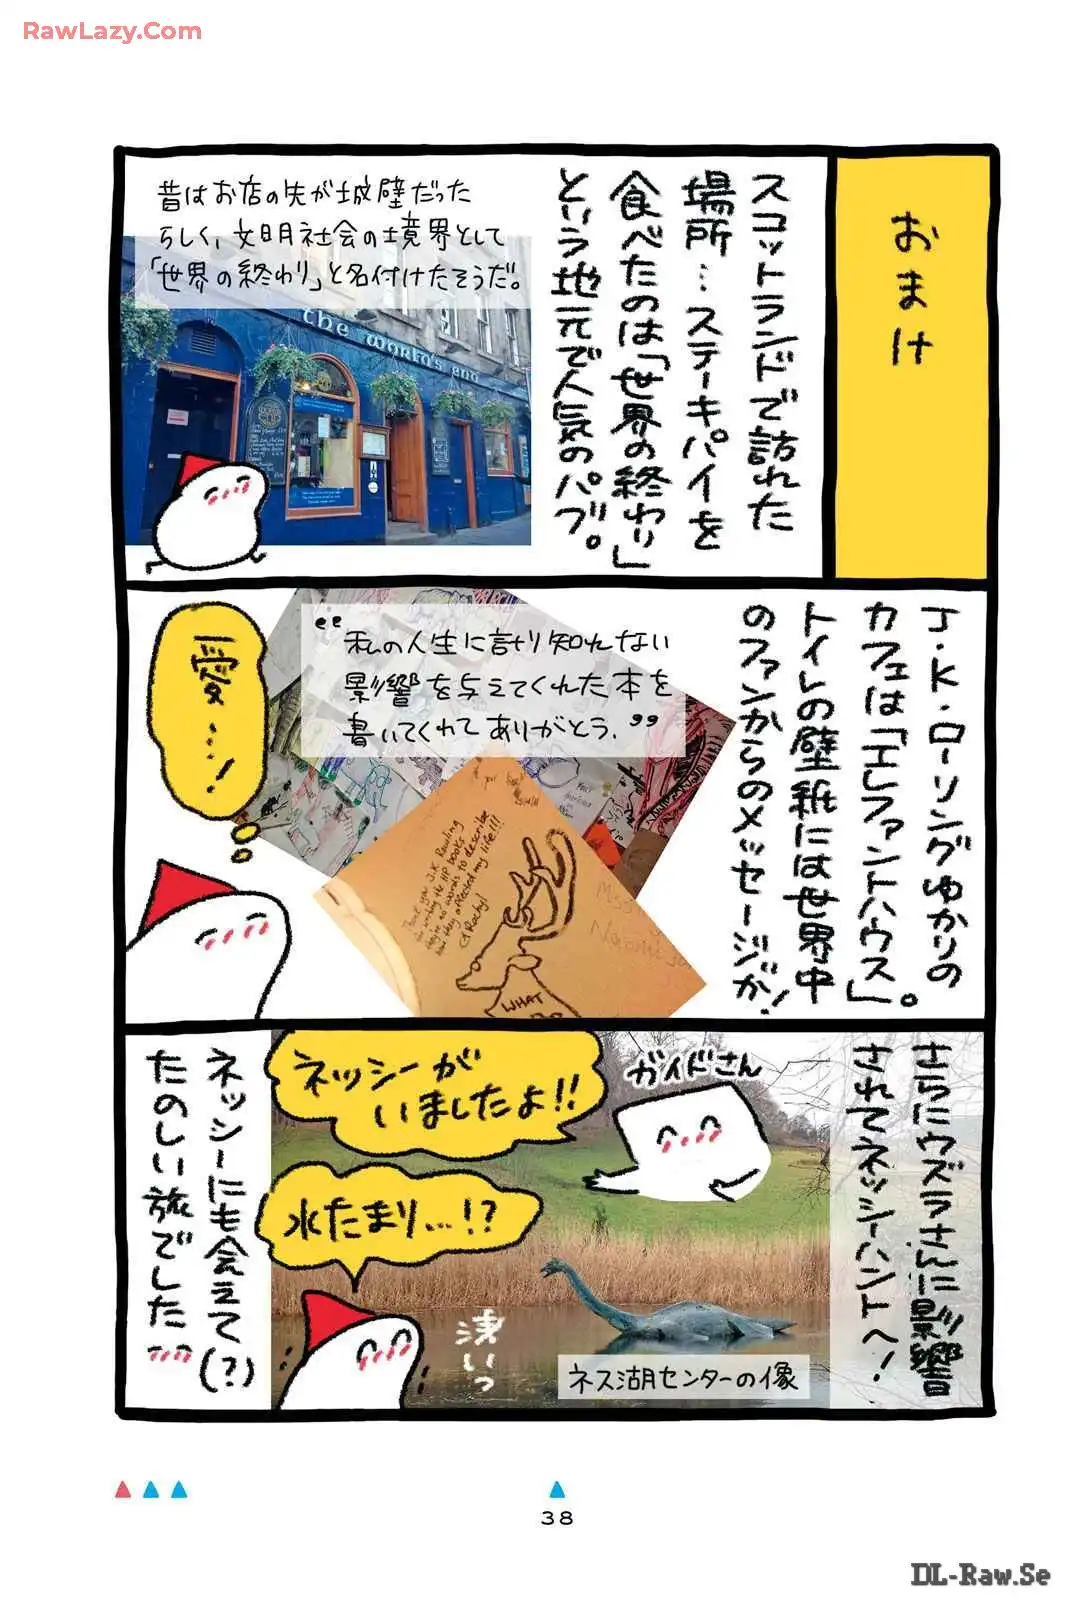 RawLazy.Com
おまけ
スコットランドで訪れた
場所…ステーキパイを
食べたのは「世界の終わり」
という地元で人気のパブ。
昔はお店の先が城壁だった
らしく、文明社会の境界として
「世界の終わり」と名付けたそうだ。
the WORLD'S end
J・K・ローリングゆかりの
カフェは「エレファントハウス」。
トイレの壁紙には世界中
のファンからのメッセージが！
“私の人生に計り知れない
影響を与えてくれた本を
書いてくれてありがとう.”
愛…！
Thank you J.K. Rowling
for writing the HP books
they're no words to describe
how they affected my life!!!
WHAT
さらにウズラさんに影響
されてネッシーハントへ！
ガイドさん
ネッシーが
いましたよ!!
水たまり…!?
浅いっ
ネス湖センターの像
ネッシーにも会えて(?)
たのしい旅でした
38
DL-Raw.Se